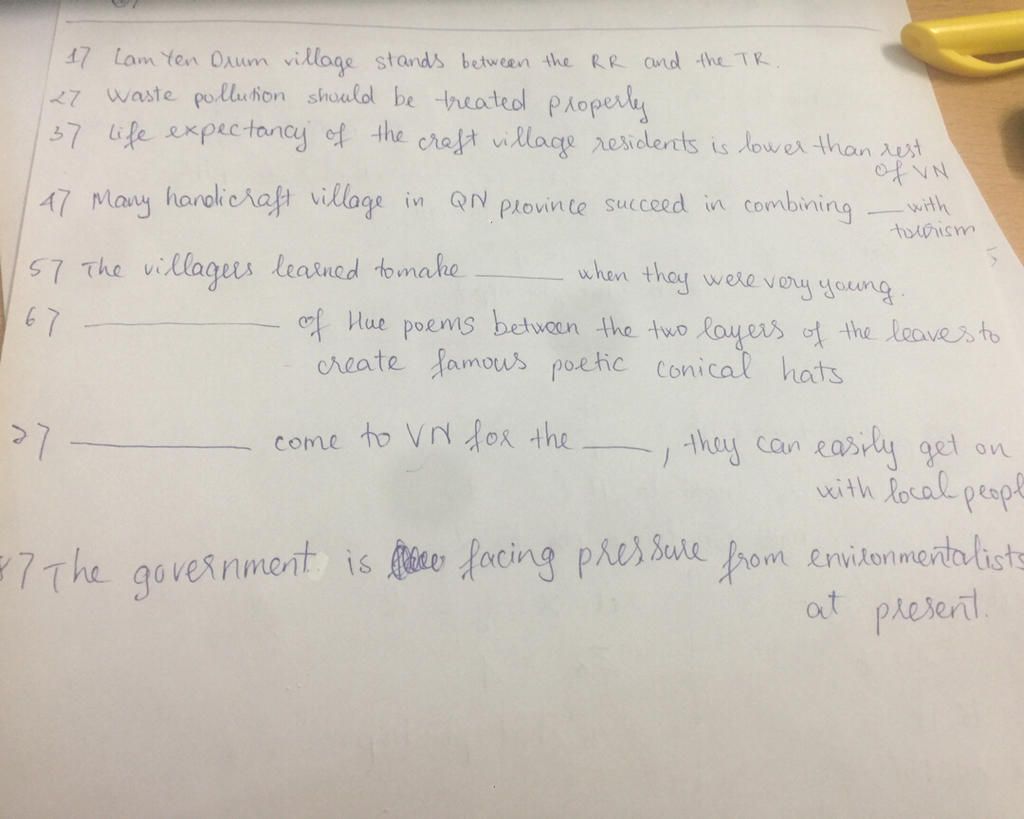 1) Lam Yen Drum village stands between the RR and the TR.
2) Waste pollution should be treated properly
3) Life expectancy of the craft village residents is lower than rest
of VN
4) Many handicraft village in QN province succeed in combining ___ with
tourism
5) The villagers learned to make ______ when they were very young.
6) ____________ of Hue poems between the two layers of the leaves to
create famous poetic conical hats
7) ____________ come to VN for the ____, they can easily get on
with local peopl
8) The government is facing pressure from environmentalists
at present.